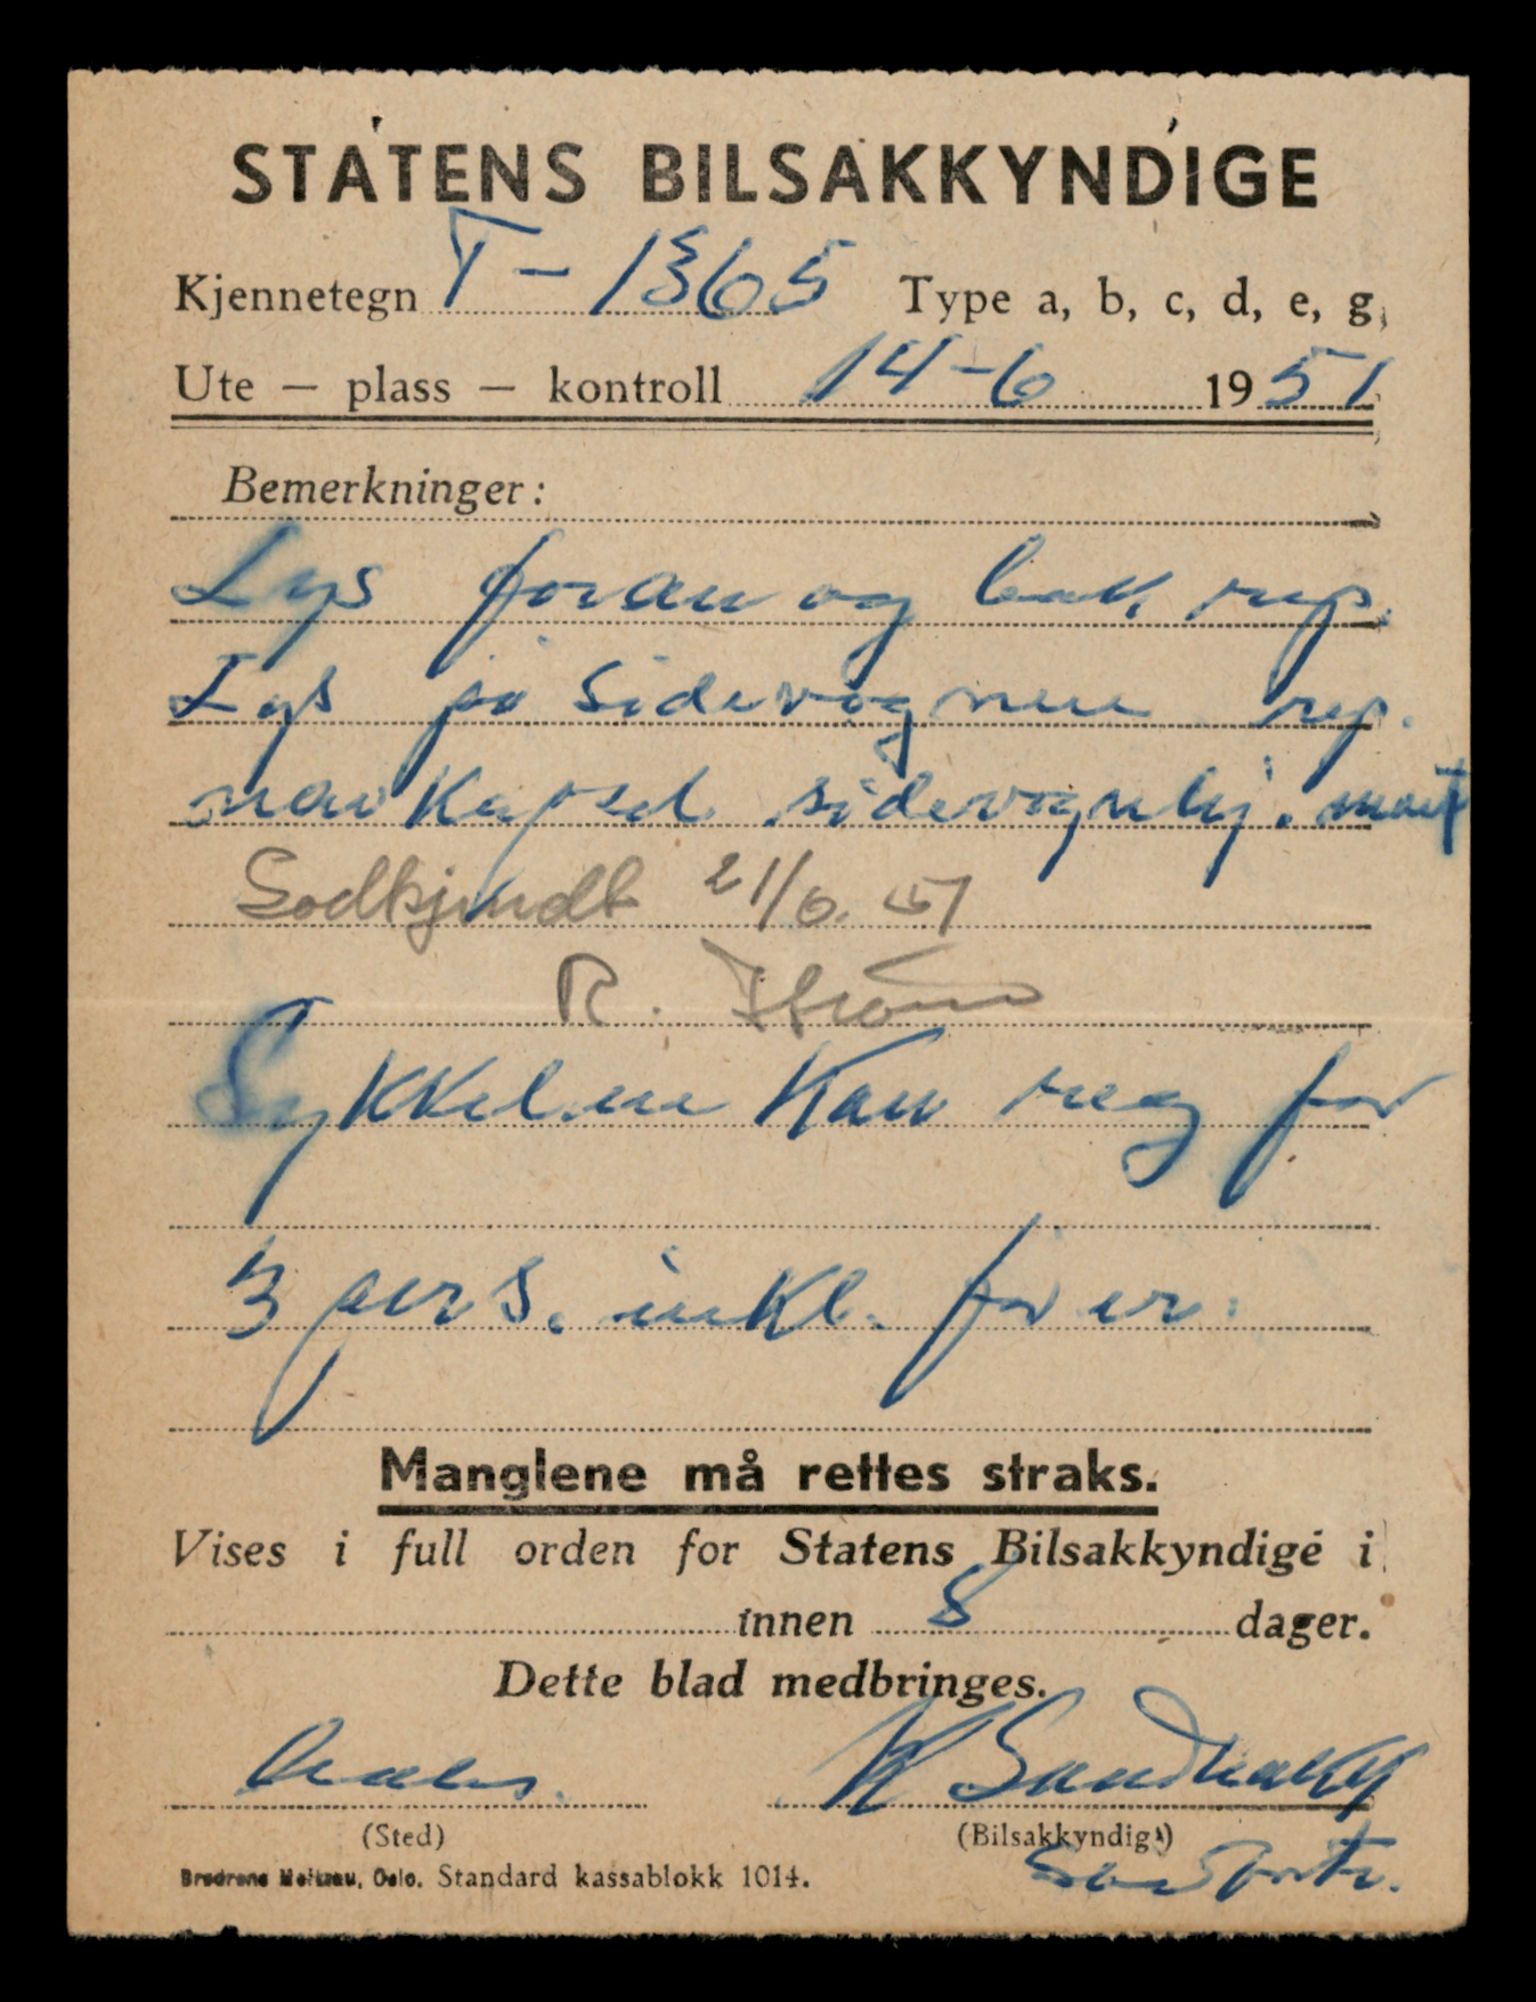 STATENS BILSAKKYNDIGE
Kjennetegn T-1365 Type a, b, c, d, e, g,
Ute — plass — kontroll 14-6 1951
Bemerkninger:
Lys foran og bak rep.
Lys på sidevognen rep.
navkapsel sidevognhj.
Godkjendt 21/6. 51
R.
Sykkelen kan reg for
3 pers. inkl. fører.
Manglene må rettes straks.
Vises i full orden for Statens Bilsakkyndige i
innen 8 dager.
Dette blad medbringes.
(Sted) (Bilsakkyndig)
Brødrene Meltzau, Oslo. Standard kassablokk 1014.